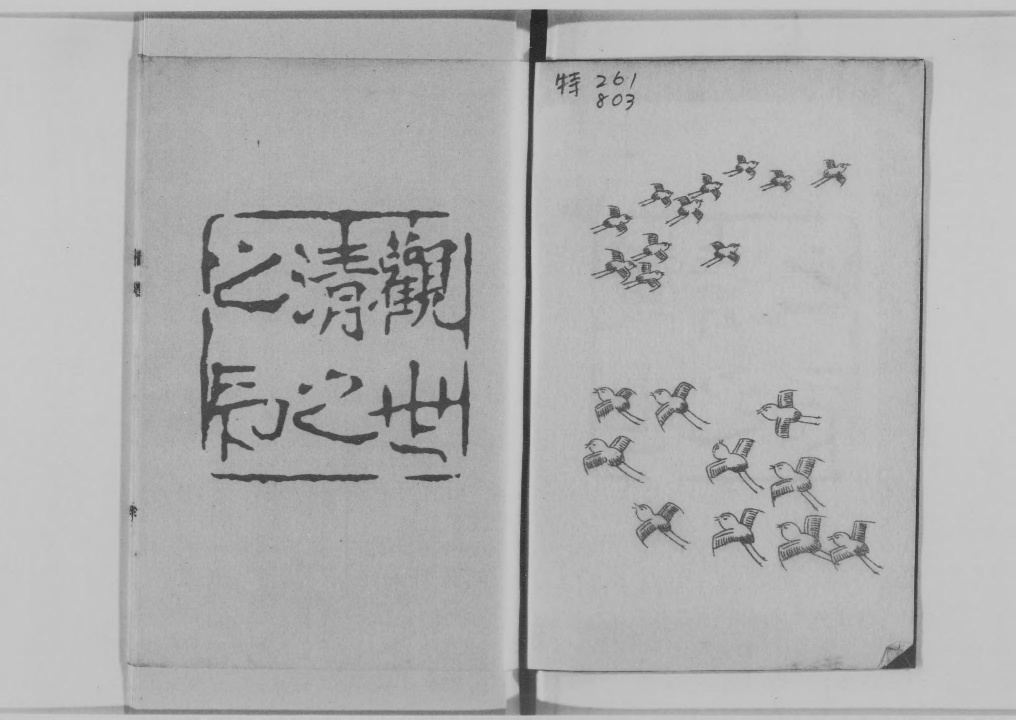 特 261
803
觀世
清之
之印